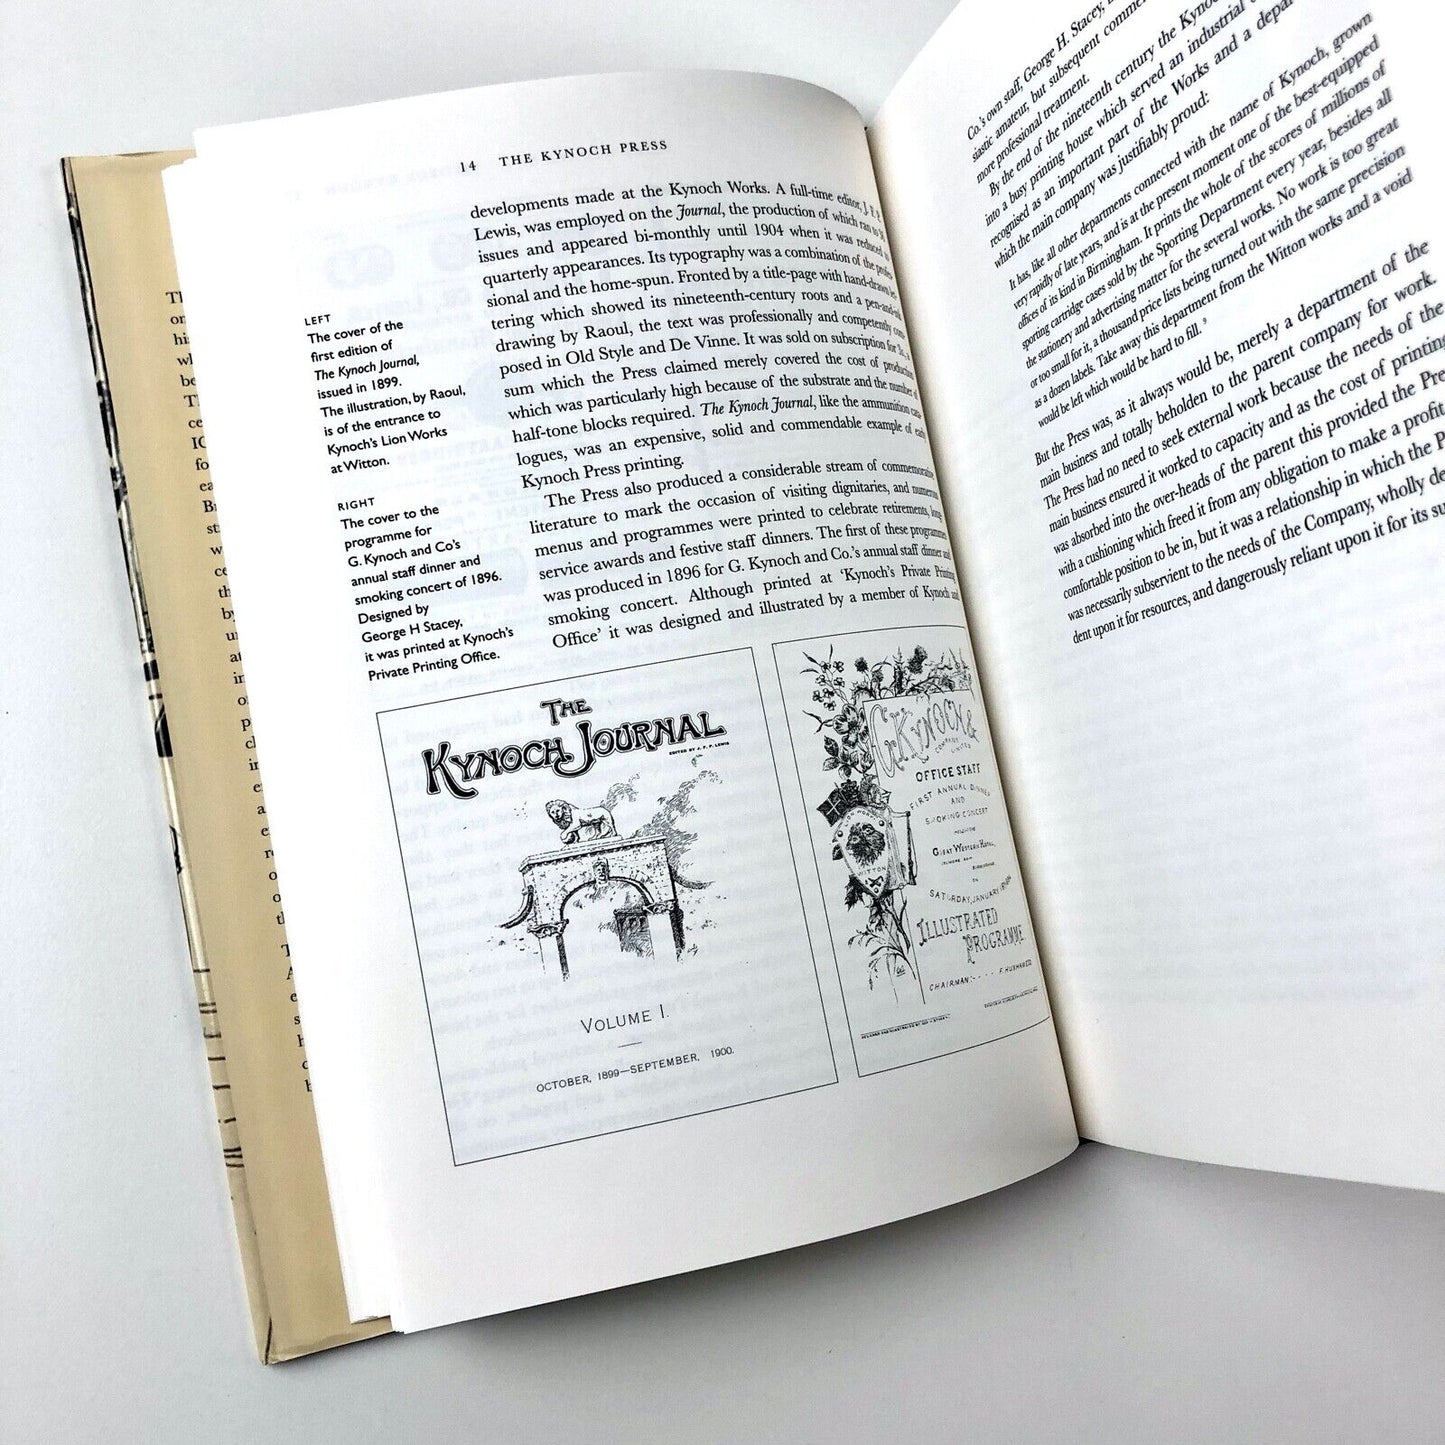 14 THE KYNOCH PRESS
developments made at the Kynoch Works. A full-time editor, J. F. P.
Lewis, was employed on the Journal, the production of which ran to
issues and appeared bi-monthly until 1904 when it was reduced to
quarterly appearances. Its typography was a combination of the profes-
sional and the home-spun. Fronted by a title-page with hand-drawn let-
tering which showed its nineteenth-century roots and a pen-and-ink
drawing by Raoul, the text was professionally and competently com-
posed in Old Style and De Vinne. It was sold on subscription for
sum which the Press claimed merely covered the cost of production
which was particularly high because of the substrate and the number of
half-tone blocks required. The Kynoch Journal, like the ammunition cata-
logues, was an expensive, solid and commendable example of early
Kynoch Press printing.
The Press also produced a considerable stream of commemorative
literature to mark the occasion of visiting dignitaries, and numerous
menus and programmes were printed to celebrate retirements, long-
service awards and festive staff dinners. The first of these programmes
was produced in 1896 for G. Kynoch and Co.'s annual staff dinner and
smoking concert. Although printed at 'Kynoch's Private Printing
Office' it was designed and illustrated by a member of Kynoch and
LEFT
The cover of the
first edition of
The Kynoch Journal,
issued in 1899.
The illustration, by Raoul,
is of the entrance to
Kynoch's Lion Works
at Witton.
RIGHT
The cover to the
programme for
G. Kynoch and Co's
annual staff dinner and
smoking concert of 1896.
Designed by
George H Stacey,
it was printed at Kynoch's
Private Printing Office.
THE
KYNOCH JOURNAL
EDITED BY J. F. P. LEWIS
VOLUME I.
OCTOBER, 1899—SEPTEMBER, 1900.
G. KYNOCH &
COMPANY
LIMITED
OFFICE STAFF
FIRST ANNUAL DINNER
AND
SMOKING CONCERT
GREAT WESTERN HOTEL,
BIRMINGHAM
ON
SATURDAY, JANUARY
ILLUSTRATED
PROGRAMME
CHAIRMAN:
Co.'s own staff, George H. Stacey,
siastic amateur, but subsequent
more professional treatment.
By the end of the nineteenth century the
into a busy printing house which served an industrial
recognised as an important part of the Works and a
which the main company was justifiably proud:
It has, like all other departments connected with the name of Kynoch, grown
very rapidly of late years, and is at the present moment one of the best-equipped
offices of its kind in Birmingham. It prints the whole of the scores of millions of
sporting cartridge cases sold by the Sporting Department every year, besides all
the stationery and advertising matter for the several works. No work is too great
or too small for it, a thousand price lists being turned out with the same precision
as a dozen labels. Take away this department from the Witton works and a void
would be left which would be hard to fill. 9
But the Press was, as it always would be, merely a department of the
main business and totally beholden to the parent company for work.
The Press had no need to seek external work because the needs of the
main business ensured it worked to capacity and as the cost of printing
was absorbed into the over-heads of the parent this provided the Press
with a cushioning which freed it from any obligation to make a profit
comfortable position to be in, but it was a relationship in which the
was necessarily subservient to the needs of the Company, wholly
dent upon it for resources, and dangerously reliant upon it for its